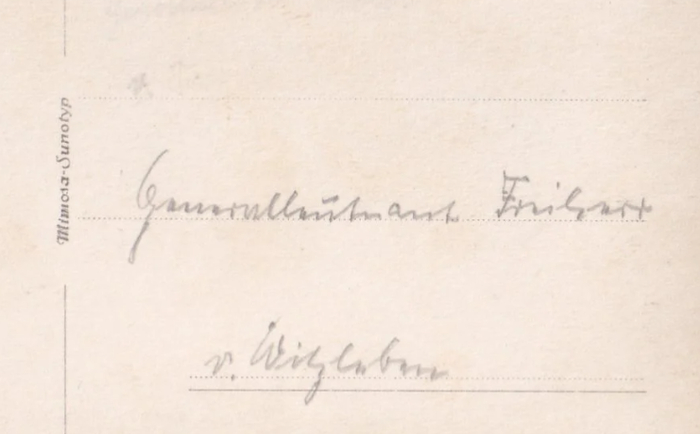 Mimosa-Sunotyp
Generalleutnant Freiherr
v. Witzleben